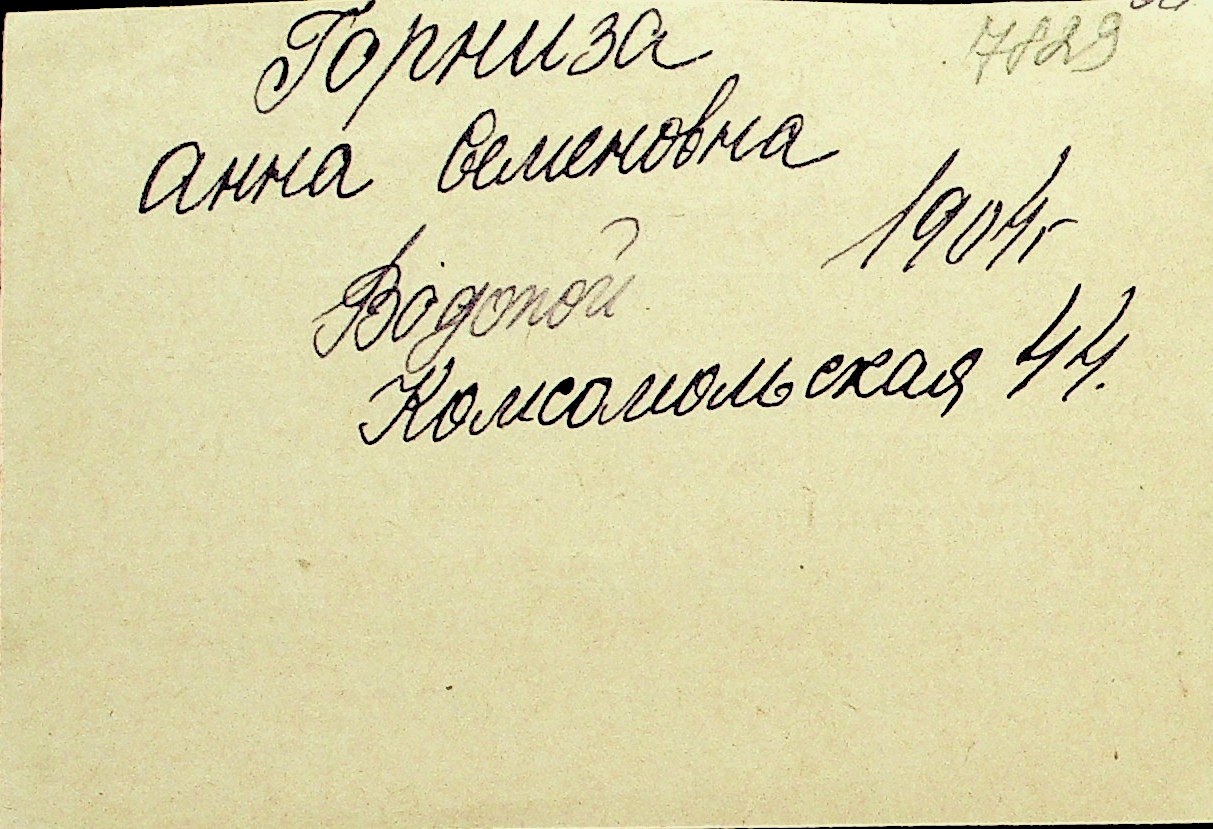 Горниза 7823
Анна Семеновна
1904г
Водопой
Комсомольская 44.